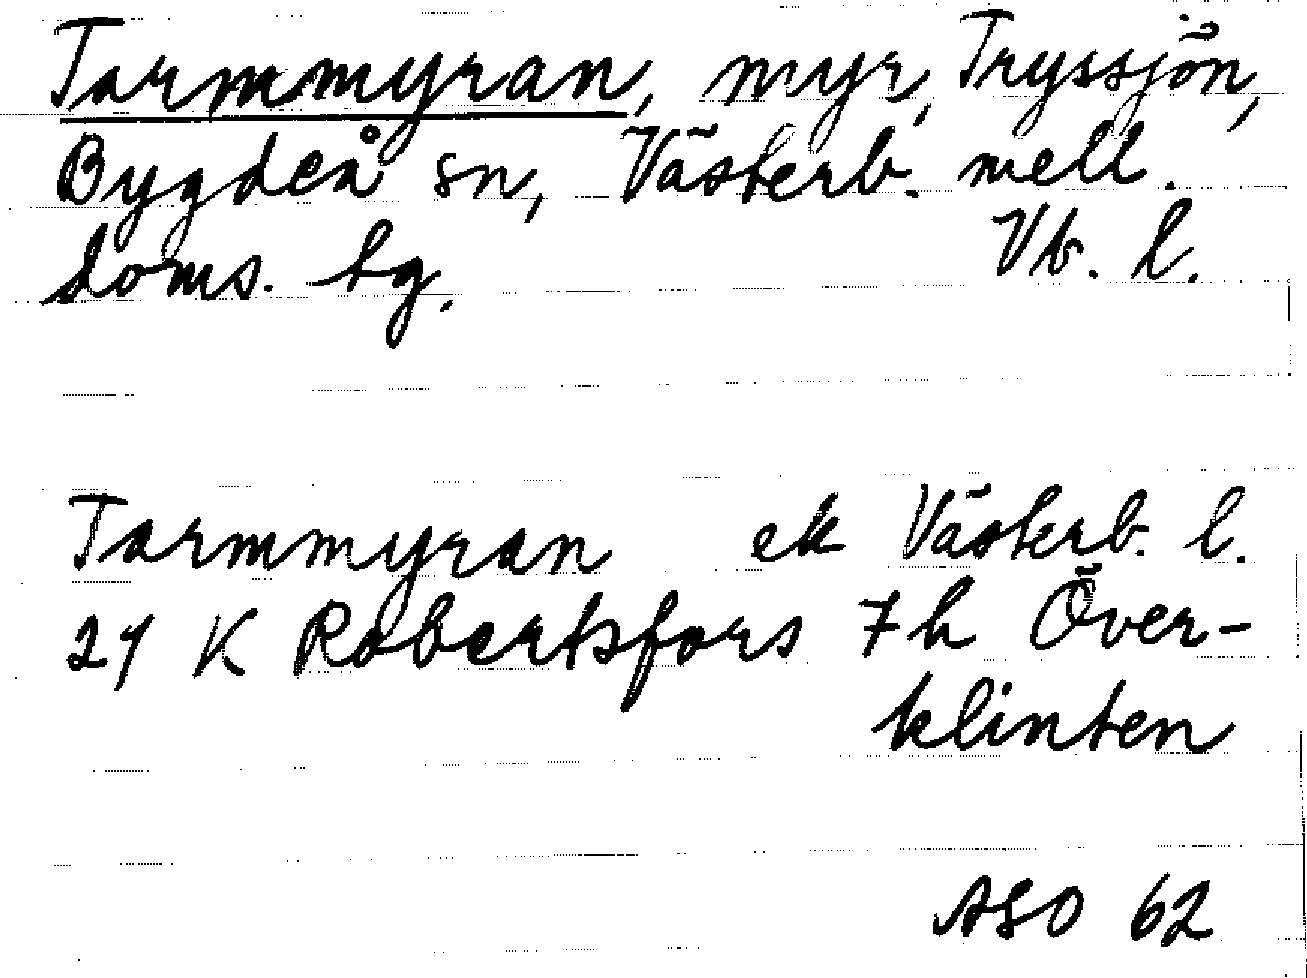 Tarmmyran, myr, Tryssjön,
Bygdeå sn, Västerb. mell.
doms. hg. Vb. l.
Tarmmyran ek Västerb. l.
21 K Robertsfors 7h Över-
klinten
ASO 62